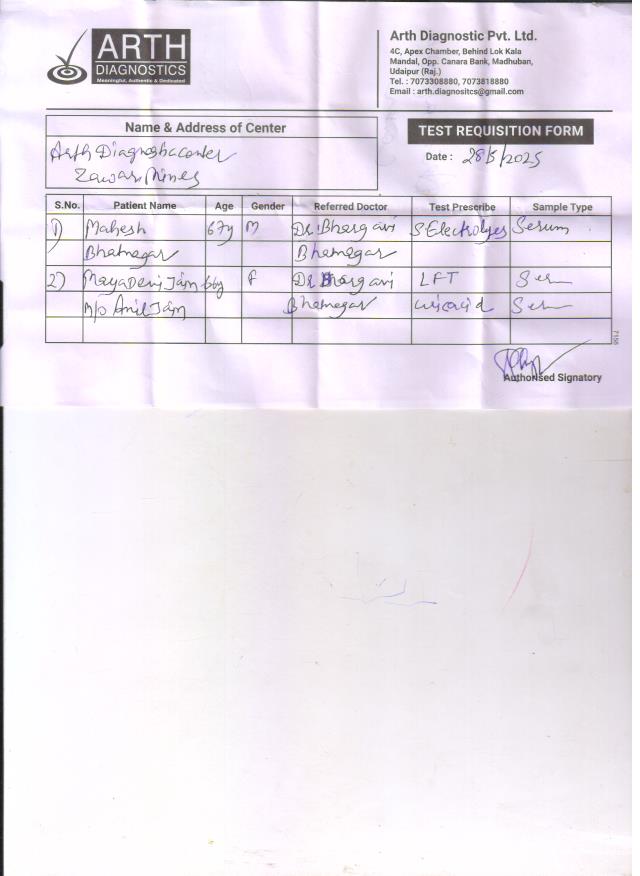 ARTH
DIAGNOSTICS
Meaningful, Authentic & Dedicated
Arth Diagnostic Pvt. Ltd.
4C, Apex Chamber, Behind Lok Kala
Mandal, Opp. Canara Bank, Madhuban,
Udaipur (Raj.)
Tel. : 7073308880, 7073818880
Email : arth.diagnositcs@gmail.com
Name & Address of Center
Arth Diagnostic center
Zawar Mines
TEST REQUISITION FORM
Date : 28/5/2025
S.No. Patient Name Age Gender Referred Doctor Test Prescribe Sample Type
1) Mahesh 67y M Dr. Bhargavi S. Electrolyes Serum
Bhatnagar Bhatnagar
2) Maya Devi Jain 66y F Dr Bhargavi LFT Ser
Anil Jain Bhatnagar uricacid Ser
7156
Authorised Signatory